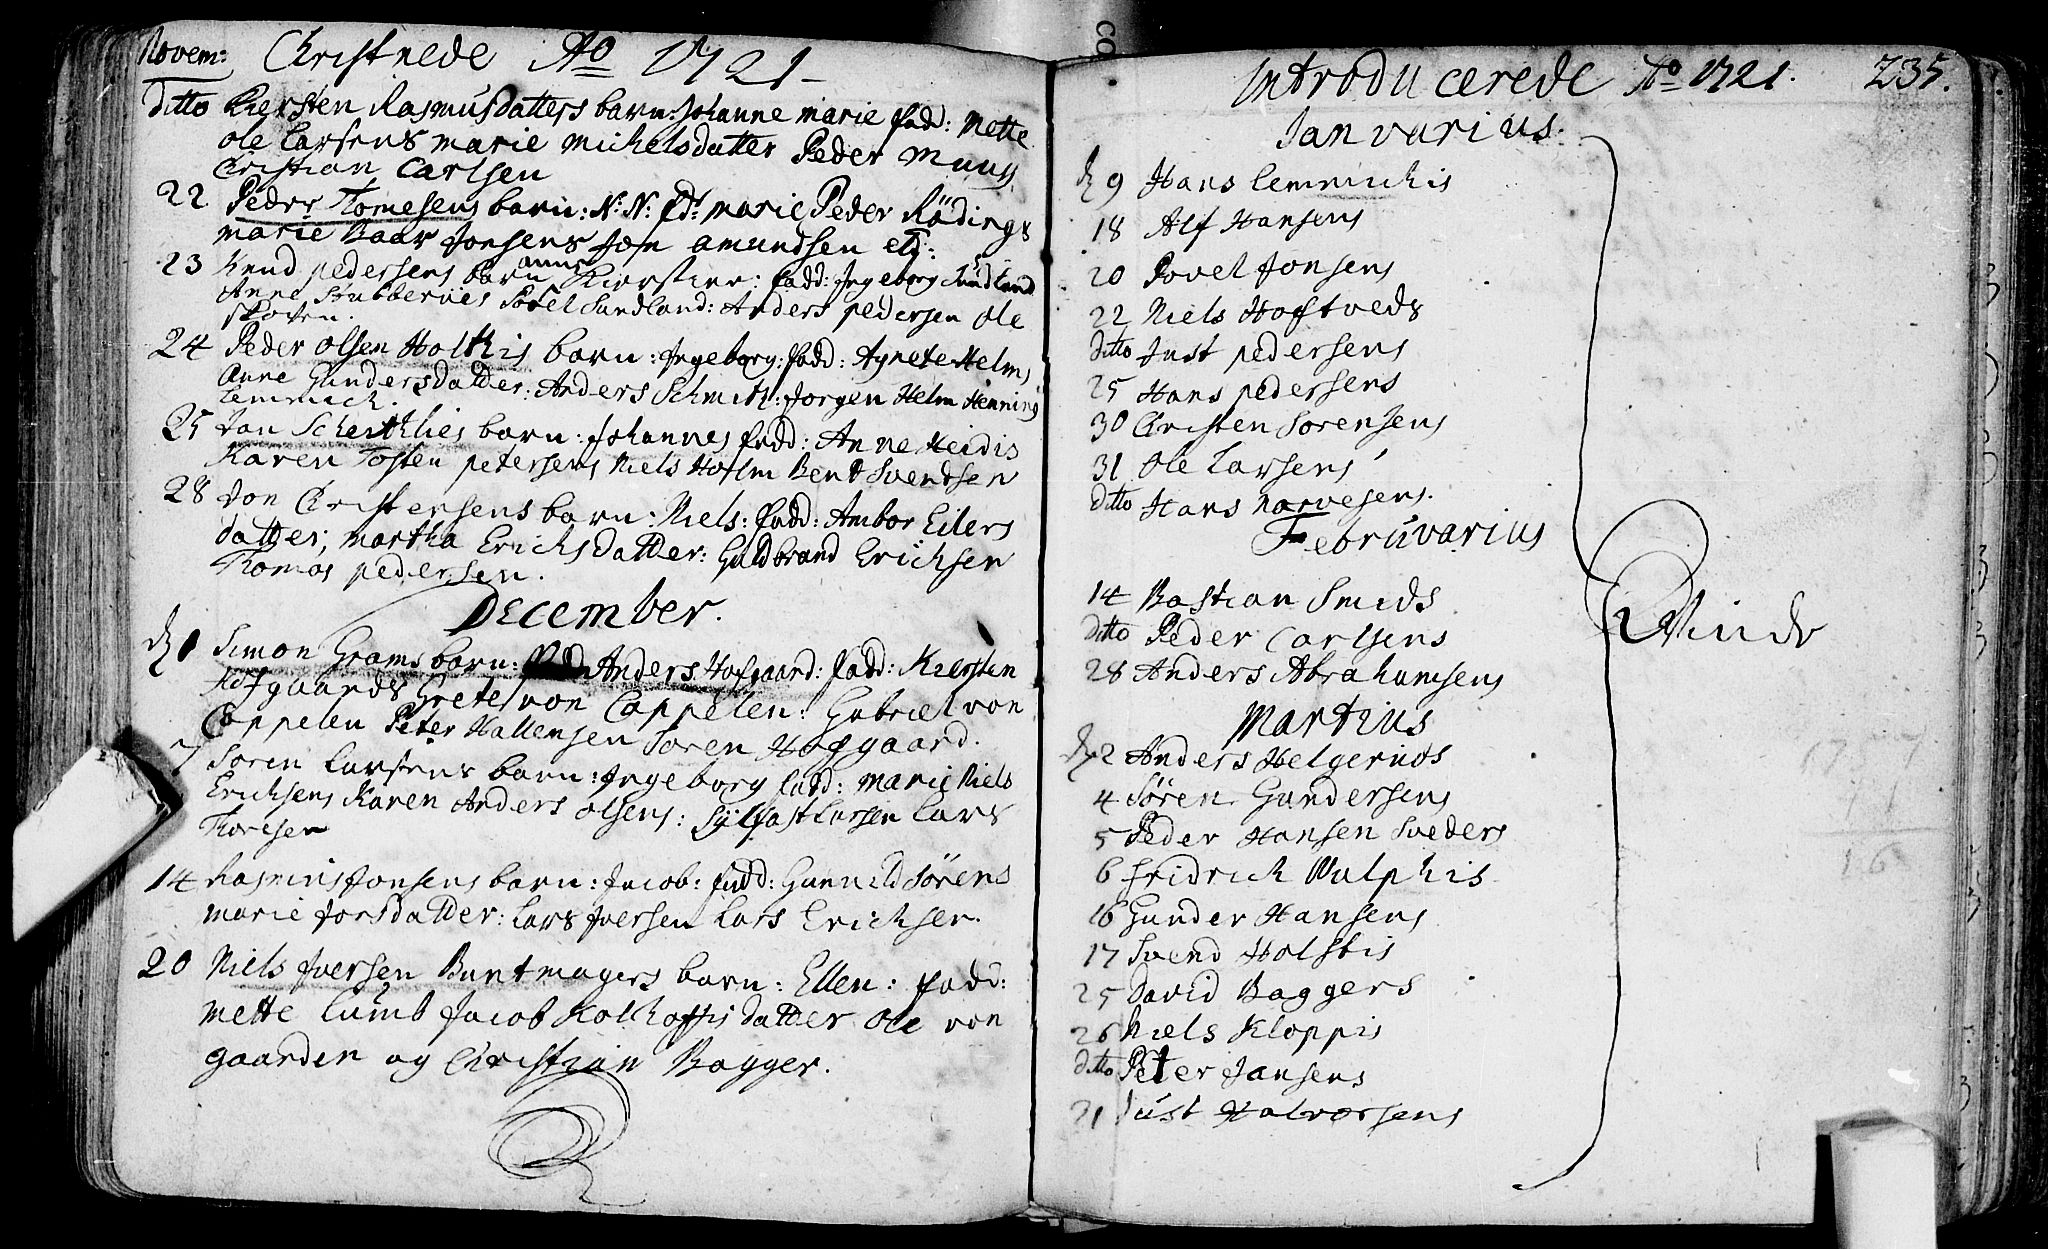 Novem: Christnede Ao 1721
ditto Kiersten Rasmusdatters barn: Johanne marie fad: Mette
ole Larsens marie michelsdatter Peder Muus
Christian Carlsen
22 Peder Tomesens barn: N: N: fd: marie Peder Rødings
marie Baar Jonsens Jon amundsen etc:
23 Knud pedersens barn anne Kierstine: fadd: Ingeborg Sundland
Anne Stubberuds Sundland: Anders pedersen ole
24 Peder olsen Holthis barn: Ingeborg: fadd: Agnete Helms
Anne Gundersdatter: Anders Schmith: Jørgen Helm Henning
Lemmich.
25 Jan barn: Johannes fadd: Anne Meidis
Karen Tosten petersens Niels Holm Bent Svendsen
28 Jon Christensens barn: Niels: fadd: Ambor Eilers
datter, martha Erichsdatter: Guldbrand Erichsen
Thomas pedersen.
December.
d 1 Simon Grams barn: Anders Hofgaard: fadd: Kiersten
Hofgaards Grete von Cappelen: Gabriel von
Cappelen Peter Hallensen Søren Hofgaard.
7 Søren Larsens barn: Ingeborg fadd: marie Niels
Erichsens Karen Anders olsens: Sylfast Larsen Lars
Thoresen
14 Rasmus Jonsens barn: Jacob: fadd: Gunnild Sørens
marie Jonsdatter: Lars Iversen Lars Erichsen.
20 Niels Iversen Buntmagers barn: Ellen: fadd:
mette Lumb Jacob Kolhoffis datter ole von
gaarden og Christian Bagger.
Introducerede Ao 1721. 235.
Ianvarius.
d 9 Hans Lemmichis
18 Alf Hansens
20 Povel Jonsens
22 Niels Hoftveds
ditto Just pedersens
25 Hans pedersens
30 Christen Sorensens
31 ole Larsens
ditto Hans Narvesens.
Februvarius
14 Bastian Smeds
ditto Peder Carlsens
28 Anders Abrahamsens
Qvinde
Martius
d 2 Anders Helgernos
4 Søren Gundersens
5 Peder Hansen Sveders
6 Fridrich Wulphis
16 Gunder Hansens
17 Svend Holstis
25 David Baggers
26 Niels Kloppis
ditto Peter Jansens
21 Just Halvorsens